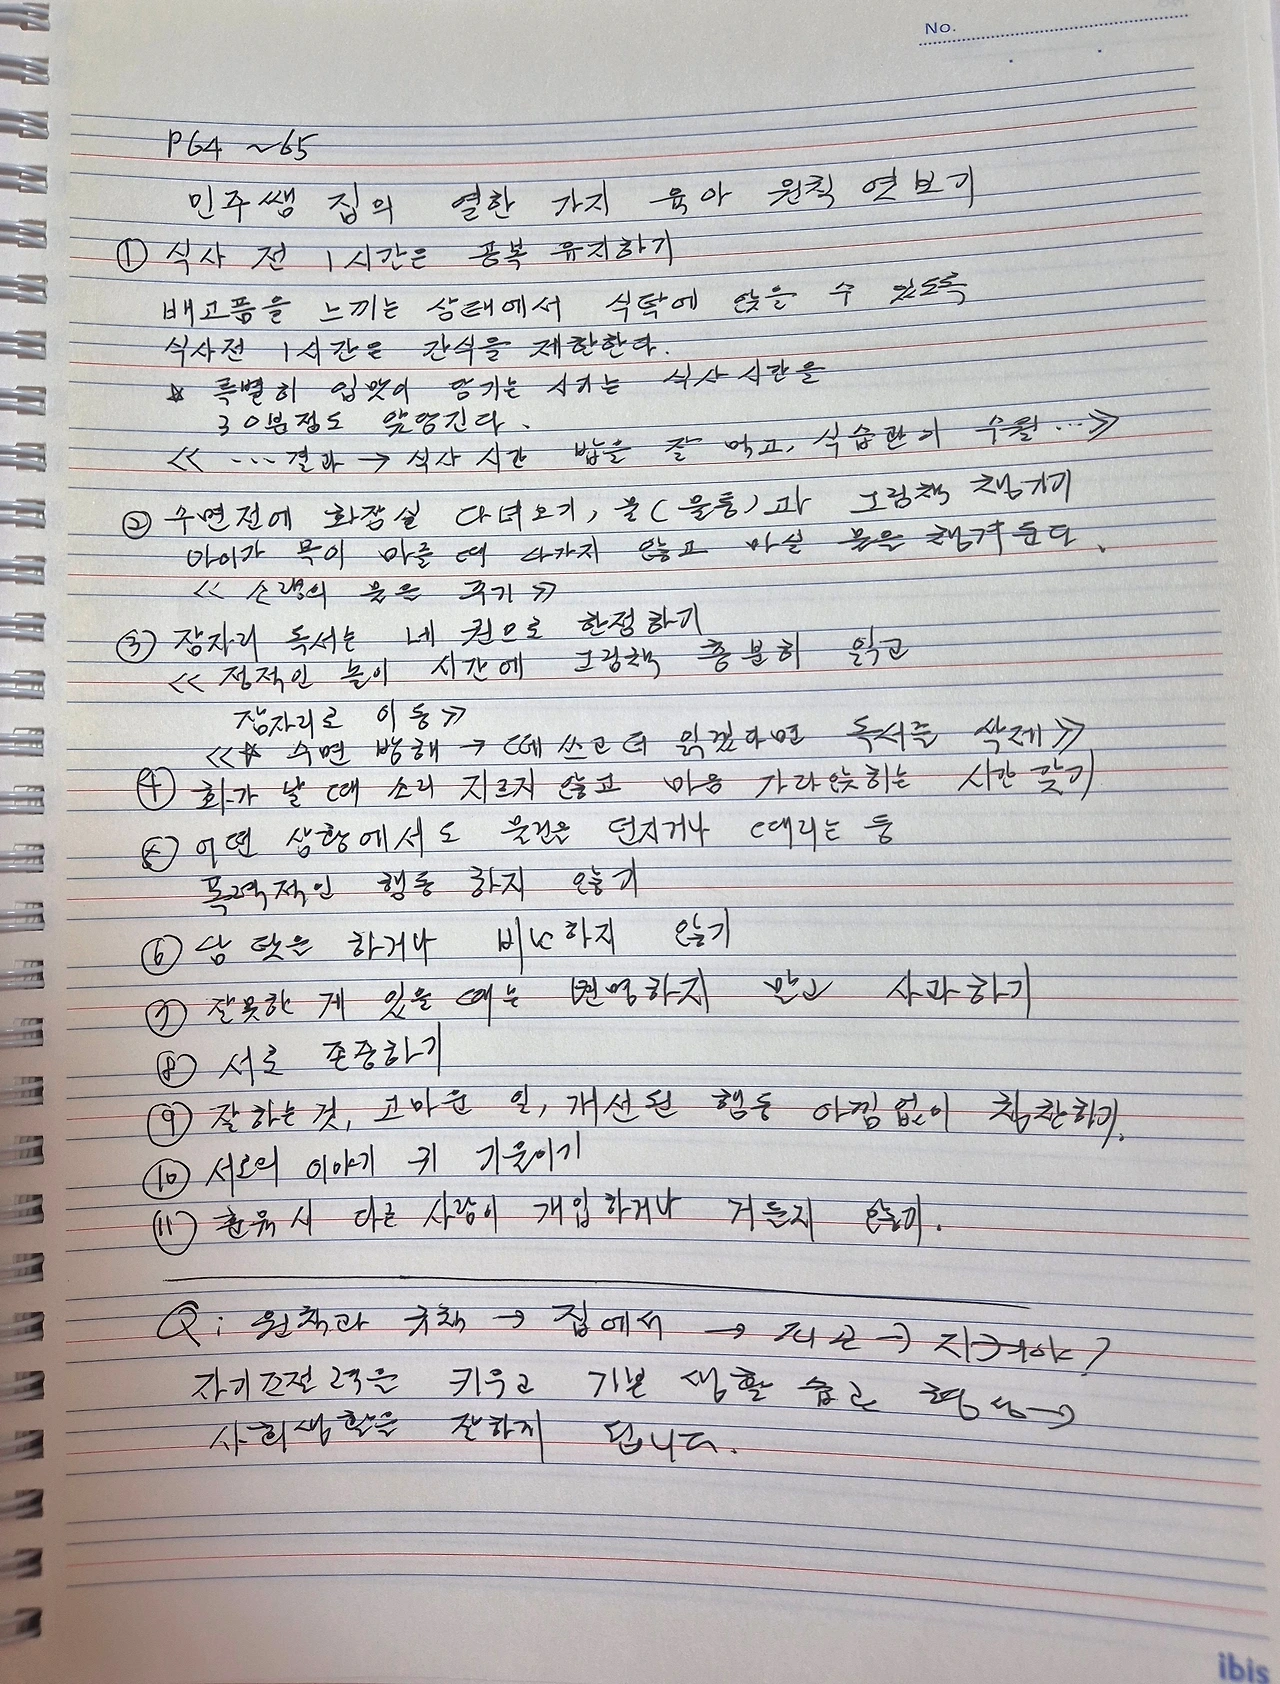 No.
P64 ~65
민주쌤 집의 열한 가지 육아 원칙 엿보기
① 식사 전 1시간은 공복 유지하기
배고픔을 느끼는 상태에서 식탁에 앉을 수 있도록
식사전 1시간은 간식을 제한한다.
☆ 특별히 입맛이 당기는 시기는 식사 시간을
30분정도 앞당긴다.
<< ... 결과 → 식사 시간 밥을 잘 먹고, 식습관이 수월 ... >>
② 수면전에 화장실 다녀오기, 물(물통)과 그림책 챙기기
아이가 목이 마를 때 나가지 않고 마실 물을 챙겨둔다.
<< 소량의 물을 주기 >>
③ 잠자리 독서는 네 권으로 한정하기
<< 정적인 놀이 시간에 그림책 충분히 읽고
잠자리로 이동 >>
<<☆ 수면 방해 → 떼쓰고 더 읽겠다면 독서를 삭제 >>
④ 화가 날 때 소리 지르지 않고 마음 가라앉히는 시간 갖기
⑤ 어떤 상황에서도 물건을 던지거나 때리는 등
폭력적인 행동 하지 않기
⑥ 남 탓은 하거나 비난하지 않기
⑦ 잘못한 게 있을 때는 변명하지 말고 사과하기
⑧ 서로 존중하기
⑨ 잘하는 것, 고마운 일, 개선된 행동 아낌없이 칭찬하기.
⑩ 서로의 이야기 귀 기울이기
⑪ 훈육시 다른 사람이 개입하거나 거들지 않기.
Q: 원칙과 규칙 → 집에서 → → 지켜야?
자기조절력을 키우고 기본 생활 습관 형성→
사회생활을 잘하게 됩니다.
ibis